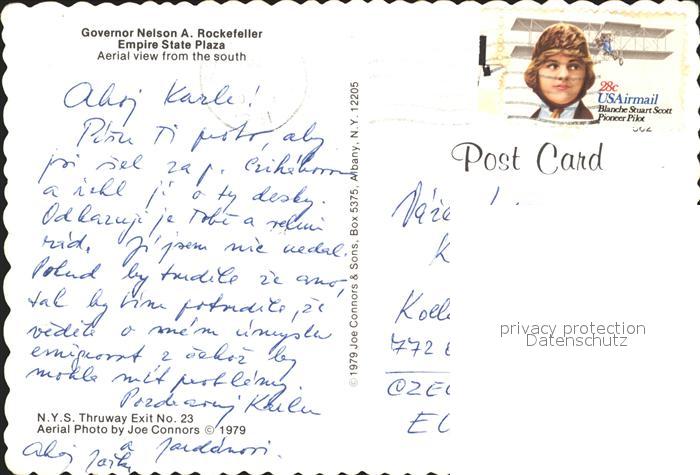 Governor Nelson A. Rockefeller
Empire State Plaza
Aerial view from the south
Ahoj Karle!
Píšu Ti proto, aby
jsi šel za p.
a řekl jí o ty desky.
Odkazuji je Tobě a velmi
rád. Jí jsem nic nedal.
Pokud by tvrdila že ano,
tak by tím potvrdila, že
věděla o mém úmyslu
emigrovat z čehož by
mohla mít problémy.
Pozdravuj
N.Y.S. Thruway Exit No. 23
Aerial Photo by Joe Connors © 1979
Ahoj
a
© 1979 Joe Connors & Sons, Box 5375, Albany, N.Y. 12205
28c
USAirmail
Blanche Stuart Scott
Pioneer Pilot
Post Card
Váže
K
772
CZE
privacy protection
Datenschutz